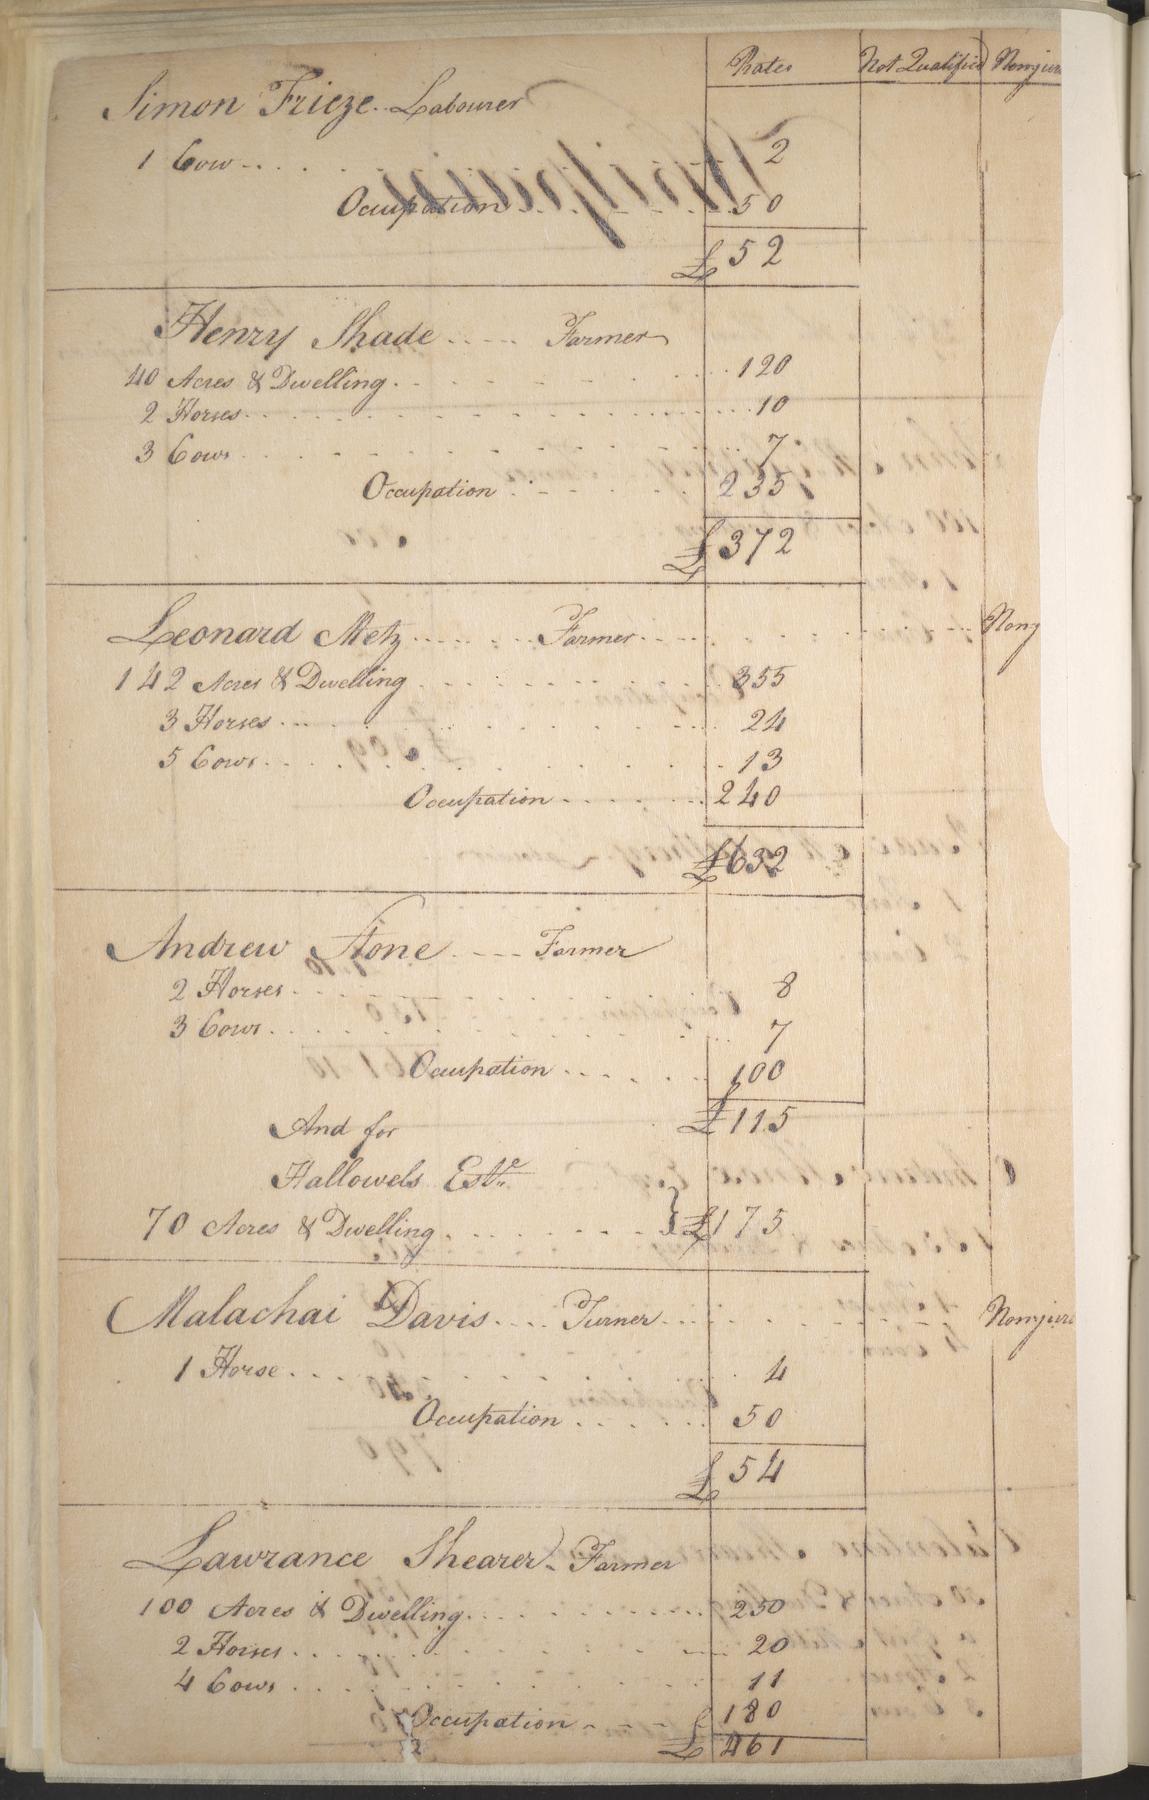 Rates Not Qualified Nonjur
Simon Frieze .. Labourer
1 Cow .... 2
Occupation .... 50
£ 52
Henry Shade ..... Farmer
40 Acres & Dwelling .... 120
2 Horses .... 10
3 Cows .... 7
Occupation .... 235
£ 372
Leonard Metz ...... Farmer .... Nonj
142 Acres & Dwelling .... 355
3 Horses .... 24
5 Cows .... 13
Occupation .... 240
£ 632
Andrew Stone .... Farmer
2 Horses .... 8
3 Cows .... 7
Occupation .... 100
£ 115
And for
Hallowels Este
70 Acres & Dwelling .... } £ 175
Malachai Davis .... Turner .... Nonjuro
1 Horse .... 4
Occupation .... 50
£ 54
Lawrance Shearer - Farmer
100 Acres & Dwelling .... 250
2 Horses .... 20
4 Cows .... 11
Occupation .... 180
£ 461